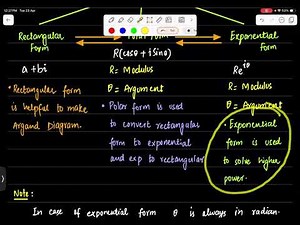 12:27 PM Tue 23 Apr
Rectangular Form
Polar Form
Exponential Form
a+bi
R(cosθ + iSinθ)
Re^iθ
R= Modulus
R= Modulus
θ = Argument
θ = Argument
• Rectangular form
is helpful to make
Argand Diagram.
• Polar form is used
to convert rectangular
form to exponential
and exp to rectangular
• Exponential
form is used
to solve higher
power.
Note:
In case of exponential form θ is always in radian.